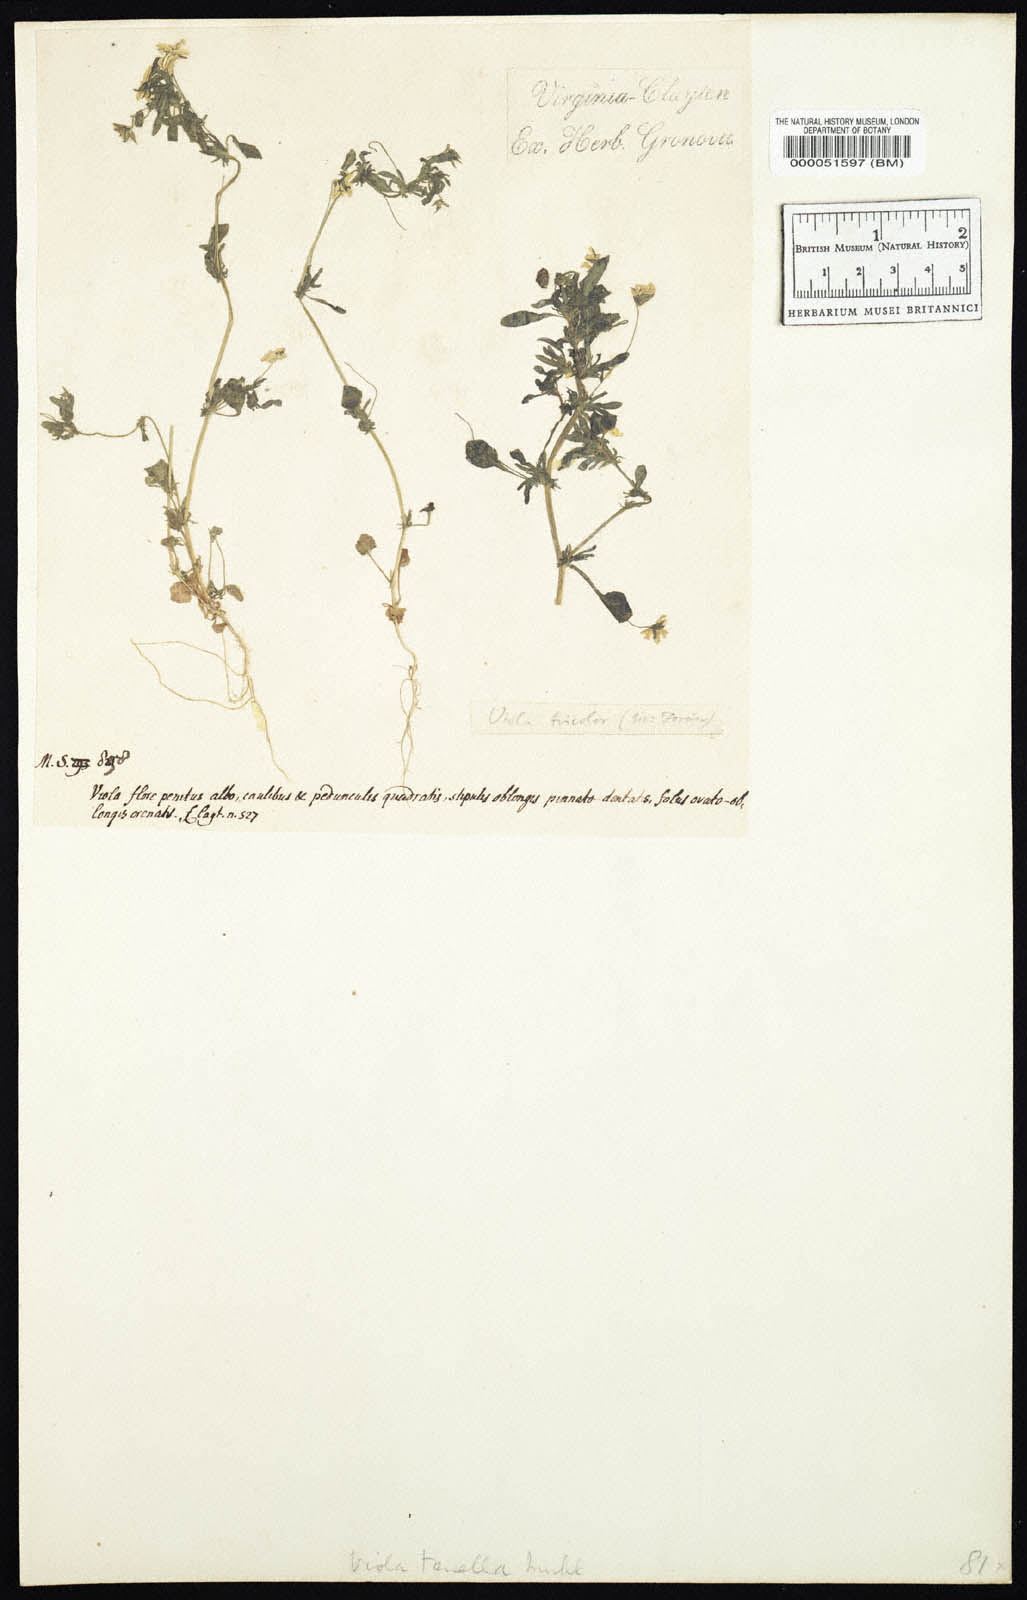 Virginia-Clayton
Ex. Herb. Gronovii
THE NATURAL HISTORY MUSEUM, LONDON
DEPARTMENT OF BOTANY
000051597 (BM)
1 2
BRITISH MUSEUM (NATURAL HISTORY)
1 2 3 4 5
HERBARIUM MUSEI BRITANNICI
Viola tricolor
M. S.
Viola flore penitus albo, caulibus & pedunculis quadratis, stipulis oblongis pinnato-dentatis, foliis ovato-ob,
longis crenatis. Clayt. n. 527
Viola tenella Muhl
81